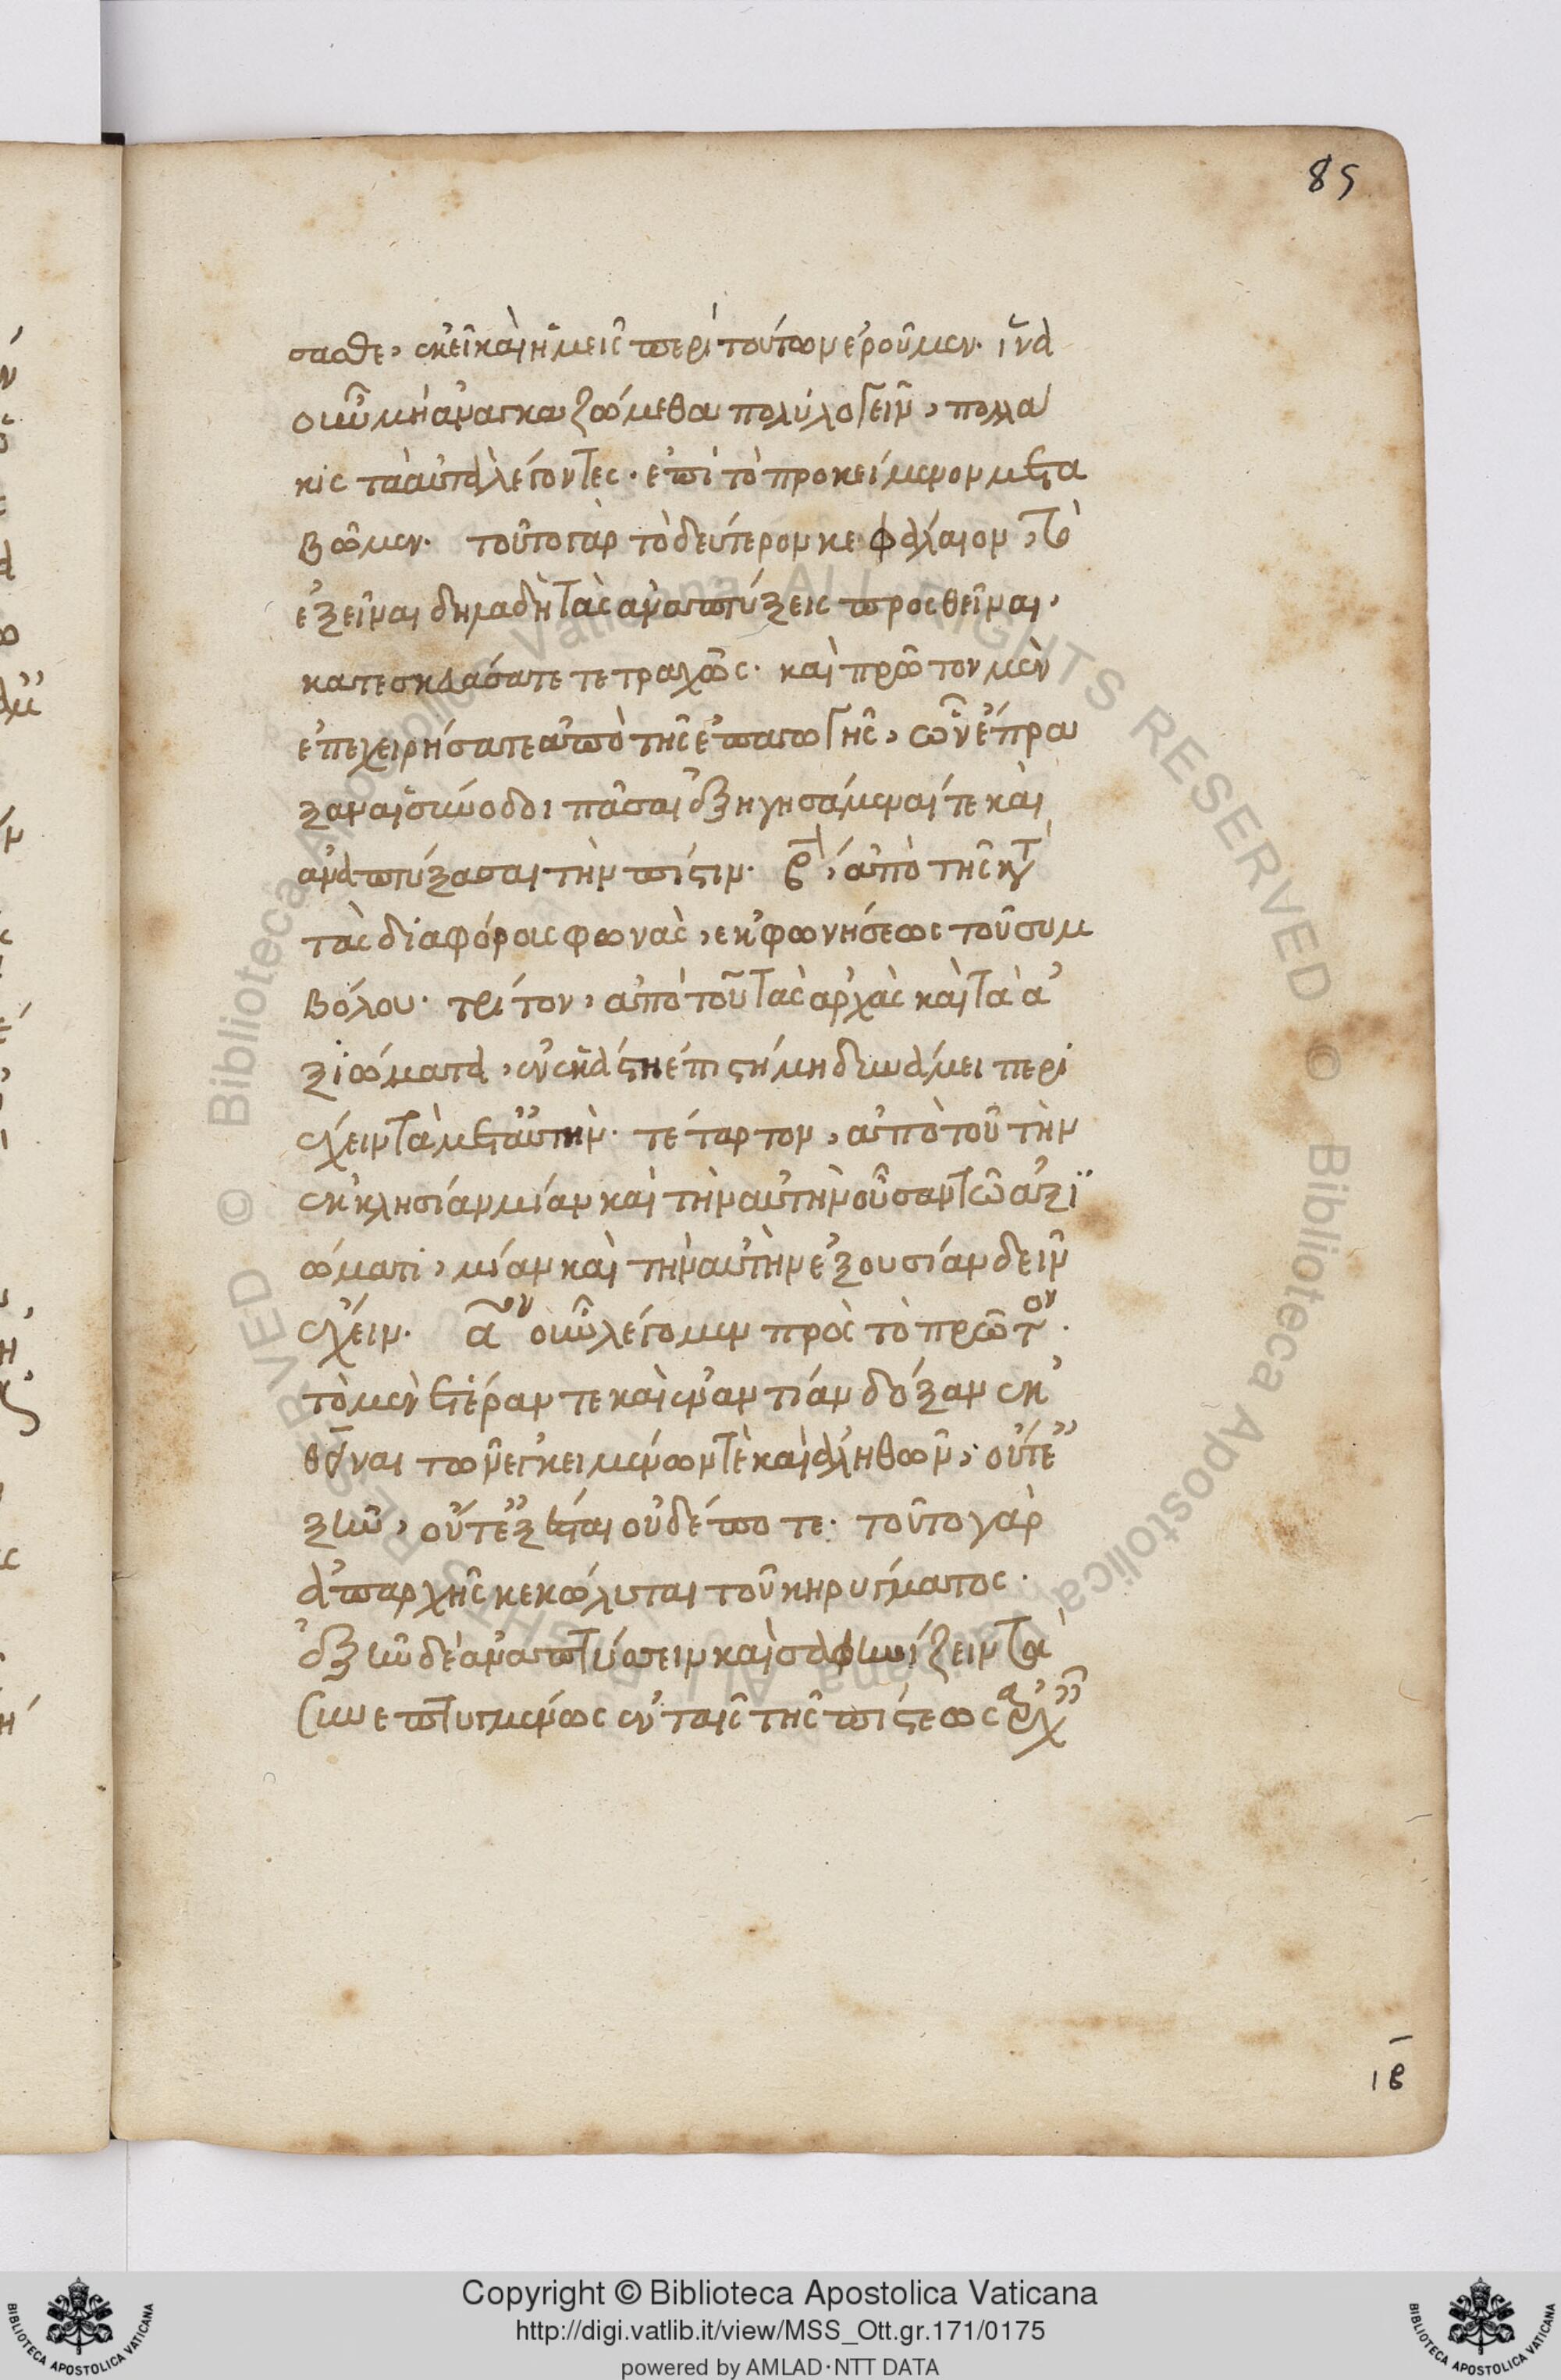 85
σασθε, ἐκεῖ καὶ ἡμεῖς περὶ τούτων ἐροῦμεν. ἵνα
οὖν μὴ ἀναγκαζώμεθα πολυλογεῖν, πολλά
κις τὰ αὐτὰ λέγοντες. ἐπὶ τὸ προκείμενον μετα
βῶμεν. τοῦτο γὰρ τὸ δεύτερον κεφάλαιον, τὸ
ἐξεῖναι δηλαδὴ τὰς ἀναπτύξεις προσθεῖναι,
κατεσκευάσατε τετραχῶς. καὶ πρῶτον μὲν
ἐπεχειρήσατε ἀπὸ τῆς ἐπαγωγῆς, ὧν ἔπρα
ξαν αἱ σύνοδοι πᾶσαι ἐξηγησάμεναί τε καὶ
ἀναπτύξασαι τὴν πίστιν. βον, ἀπὸ τῆς κατ
τὰς διαφόρους φωνὰς, ἐκφωνήσεως τοῦ συμ
βόλου. τρίτον, ἀπὸ τοῦ τὰς ἀρχὰς καὶ τὰ ἀ
ξιώματα, ἐν ἑκάστη ἐπιστήμη δυνάμει περι
έχειν τὰ μετ αὐτήν. τέταρτον, ἀπὸ τοῦ τὴν
ἐκκλησίαν μίαν καὶ τὴν αὐτὴν οὖσαν τῶ ἀξϊ
ώματι, μίαν καὶ τὴν αὐτὴν ἐξουσίαν δεῖν
ἔχειν. αον οὖν λέγομεν πρὸς τὸ πρῶτον.
τὸ μὲν ἑτέραν τε καὶ ἐναντίαν δόξαν ἐκ
θεῖναι τῶν ἐγκειμένων τὲ καὶ ἀληθῶν, οὔτε
ἐξῆν, οὔτε ἐξέσται οὐδέποτε. τοῦτο γὰρ
ἀπαρχῆς κεκώλυται τοῦ κηρύγματος.
ἐξῆν δὲ ἀναπτύσσειν καὶ σαφηνίζειν τὰ
συνεπτυγμένως ἐν ταῖς τῆς πίστεως ἀρχαῖς
ιβ
Copyright © Biblioteca Apostolica Vaticana
http://digi.vatlib.it/view/MSS_Ott.gr.171/0175
powered by AMLAD·NTT DATA